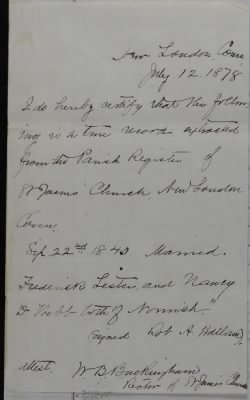 New London Conn
July 12. 1878
I do hereby certify that the follow
ing is a true record extracted
from the Parish Register of
St James' Church New London
Conn.
Sep. 22nd 1840. Married.
Frederick Lester, and Nancy
D. Webb both of Norwich,"
Signed Rob A. Hallam,
Attest. W. B. Buckingham
Rector of St James Church